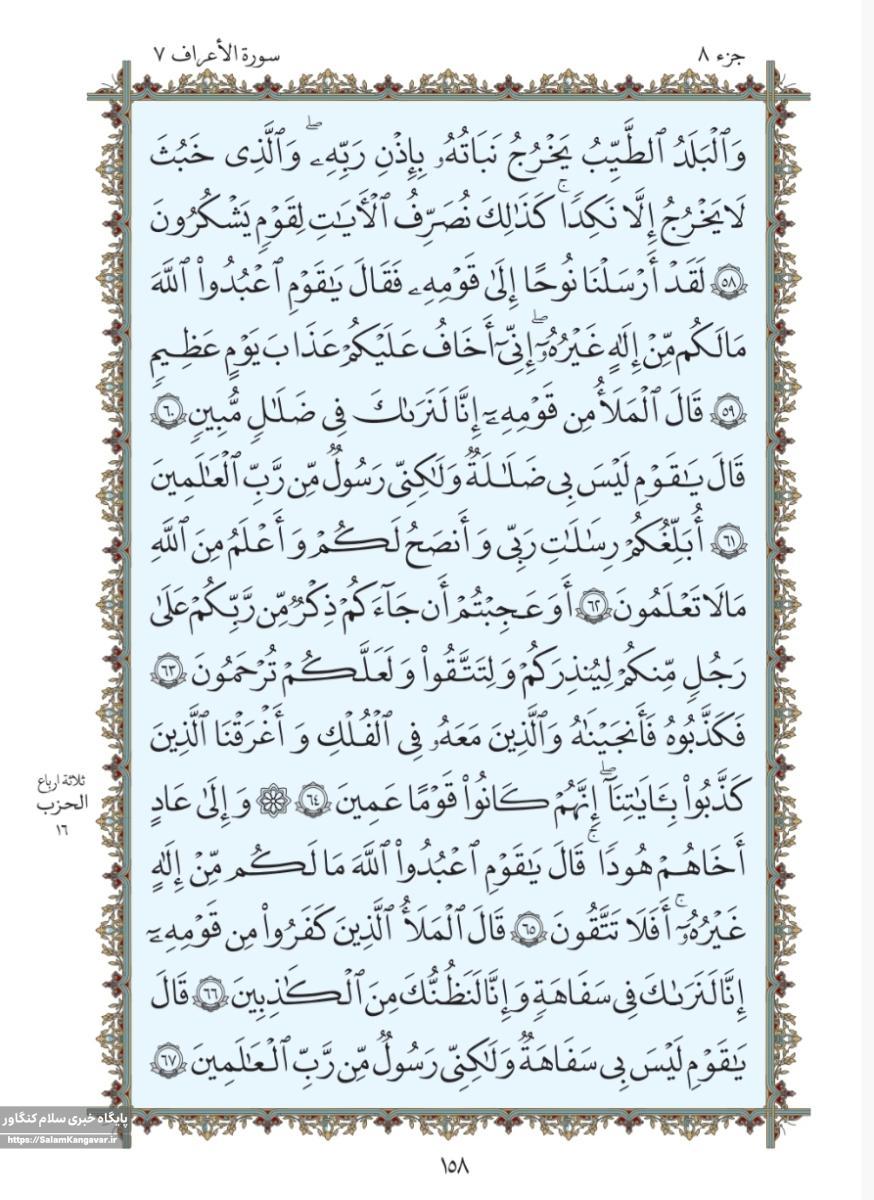 جزء ٨
سورة الأعراف ٧
وَٱلْبَلَدُ ٱلطَّيِّبُ يَخْرُجُ نَبَاتُهُۥ بِإِذْنِ رَبِّهِۦۖ وَٱلَّذِى خَبُثَ
لَا يَخْرُجُ إِلَّا نَكِدًاۚ كَذَٰلِكَ نُصَرِّفُ ٱلْأَيَٰتِ لِقَوْمٍ يَشْكُرُونَ
٥٨ لَقَدْ أَرْسَلْنَا نُوحًا إِلَىٰ قَوْمِهِۦ فَقَالَ يَٰقَوْمِ ٱعْبُدُوا۟ ٱللَّهَ
مَالَكُم مِّنْ إِلَٰهٍ غَيْرُهُۥٓۖ إِنِّىٓ أَخَافُ عَلَيْكُمْ عَذَابَ يَوْمٍ عَظِيمٍ
٥٩ قَالَ ٱلْمَلَأُ مِن قَوْمِهِۦٓ إِنَّا لَنَرَىٰكَ فِى ضَلَٰلٍ مُّبِينٍ ٦٠
قَالَ يَٰقَوْمِ لَيْسَ بِى ضَلَٰلَةٌ وَلَٰكِنِّى رَسُولٌ مِّن رَّبِّ ٱلْعَٰلَمِينَ
٦١ أُبَلِّغُكُمْ رِسَٰلَٰتِ رَبِّى وَأَنصَحُ لَكُمْ وَأَعْلَمُ مِنَ ٱللَّهِ
مَالَا تَعْلَمُونَ ٦٢ أَوَعَجِبْتُمْ أَن جَآءَكُمْ ذِكْرٌ مِّن رَّبِّكُمْ عَلَىٰ
رَجُلٍ مِّنكُمْ لِيُنذِرَكُمْ وَلِتَتَّقُوا۟ وَلَعَلَّكُمْ تُرْحَمُونَ ٦٣
فَكَذَّبُوهُ فَأَنجَيْنَٰهُ وَٱلَّذِينَ مَعَهُۥ فِى ٱلْفُلْكِ وَأَغْرَقْنَا ٱلَّذِينَ
كَذَّبُوا۟ بِـَٔايَٰتِنَآۖ إِنَّهُمْ كَانُوا۟ قَوْمًا عَمِينَ ٦٤ ۞ وَإِلَىٰ عَادٍ
أَخَاهُمْ هُودًاۚ قَالَ يَٰقَوْمِ ٱعْبُدُوا۟ ٱللَّهَ مَا لَكُم مِّنْ إِلَٰهٍ
غَيْرُهُۥٓۚ أَفَلَا تَتَّقُونَ ٦٥ قَالَ ٱلْمَلَأُ ٱلَّذِينَ كَفَرُوا۟ مِن قَوْمِهِۦٓ
إِنَّا لَنَرَىٰكَ فِى سَفَاهَةٍ وَإِنَّا لَنَظُنُّكَ مِنَ ٱلْكَٰذِبِينَ ٦٦ قَالَ
يَٰقَوْمِ لَيْسَ بِى سَفَاهَةٌ وَلَٰكِنِّى رَسُولٌ مِّن رَّبِّ ٱلْعَٰلَمِينَ ٦٧
ثلاثة ارباع
الحزب
١٦
پایگاه خبری سلام کنگاور
https://SalamKangavar.ir
١٥٨